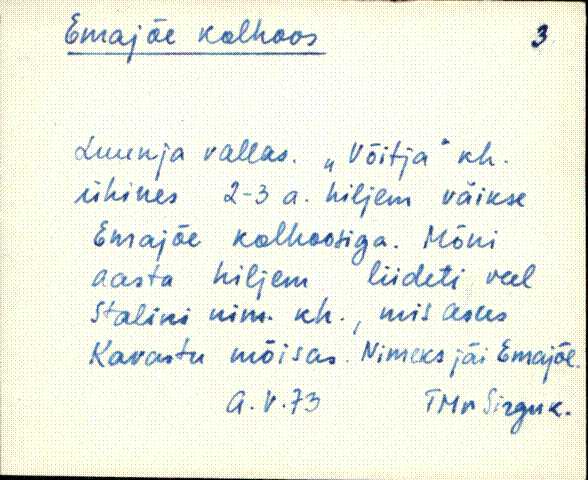 Emajõe kolhoos
3
Luunja vallas. „Võitja" kh.
ühines 2-3 a. hiljem väikse
Emajõe kolhoosiga. Mõni
aasta hiljem liideti veel
Stalini nim. kh., mis asus
Kavastu mõisas. Nimeks jäi Emajõe.
A.V.73 TMr